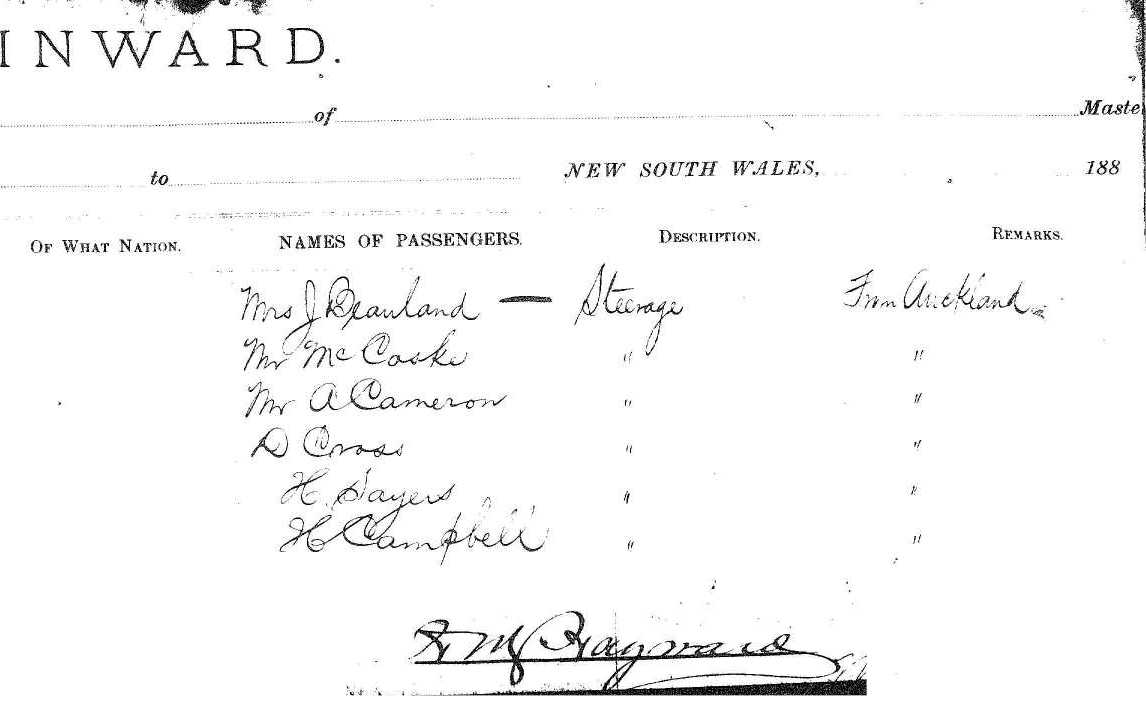 INWARD.
of Maste
to NEW SOUTH WALES, 188
OF WHAT NATION. NAMES OF PASSENGERS. DESCRIPTION. REMARKS.
Mrs J — Steerage From Auckland
Mr Mc " "
Mr A Cameron " "
D Cross " "
H. Sayers " "
H Campbell " "
Hayward